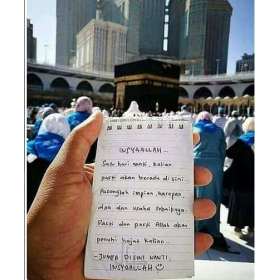 INSYAALLAH..
Satu hari nanti, kalian
pasti akan berada di sini..
Pasanglah impian, harapan,
doa dan usaha sebaiknya.
Pasti dan pasti Allah akan
penuhi hajat kalian..
- JUMPA DISINI NANTI,
INSYAALLAH ☺